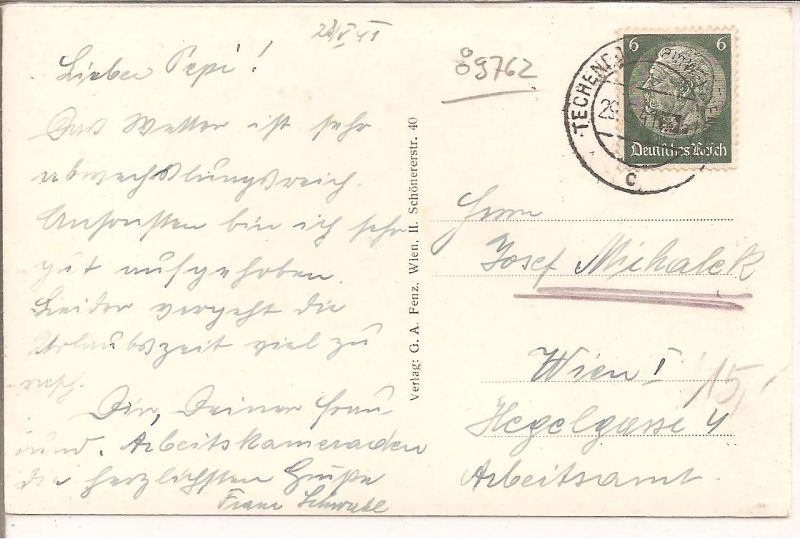 28/V 41
Lieber Pepi!
Das Wetter ist sehr
abwechslungsreich.
Ansonsten bin ich sehr
gut aufgehoben.
Leider vergeht die
Urlaubszeit viel zu
rasch.
Dir, Deiner Frau
und Arbeitskameraden
die herzlichsten Grüße
Franz
Verlag: G. A. Fenz, Wien, II. Schönererstr. 40
89762
TECHEN
29
C
6 6
Deutsches Reich
Herrn
Josef Michalek
Wien I
Hegelgasse 4
Arbeitsamt.
15